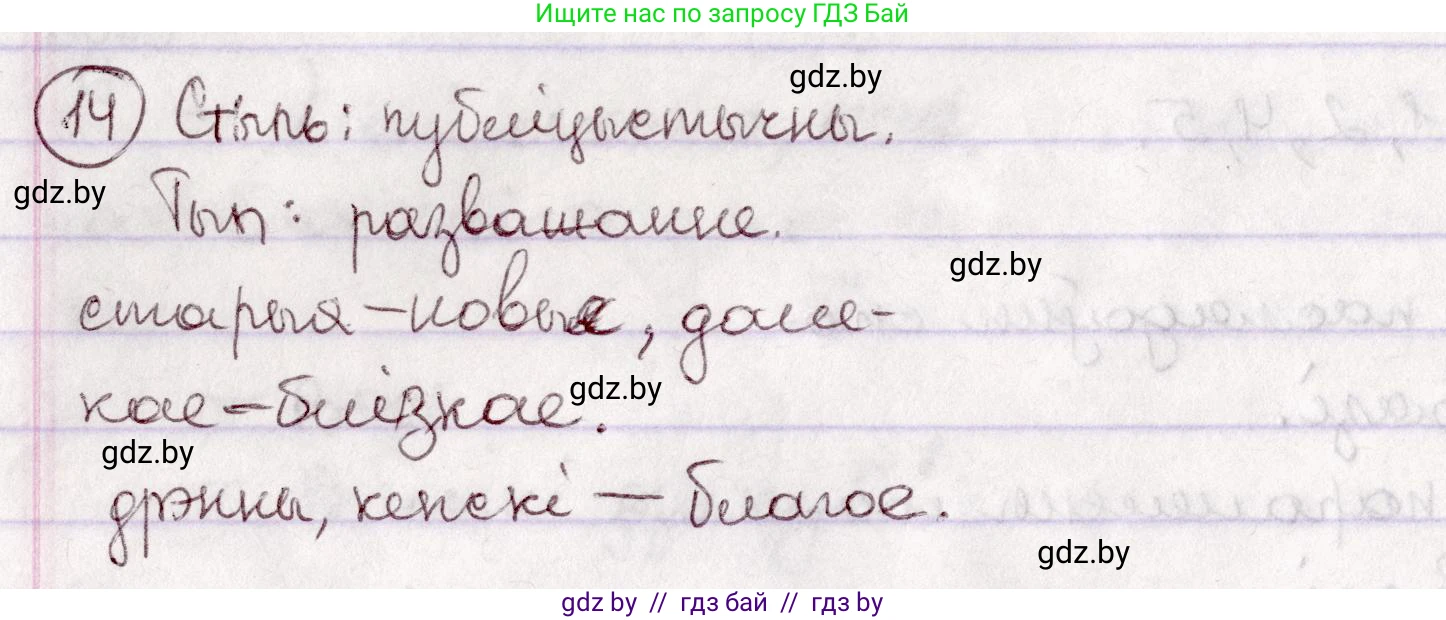 Ищите нас по запросу ГДЗ Бай
gdz.by
14 Стыль: публіцыстычны.
gdz.by
Тып: разважанне.
gdz.by
старыя – новыя, дале-
gdz.by
кае – блізкае.
gdz.by
дрэнны, кепскі — благое.
gdz.by
gdz by // гдз бай // гдз by